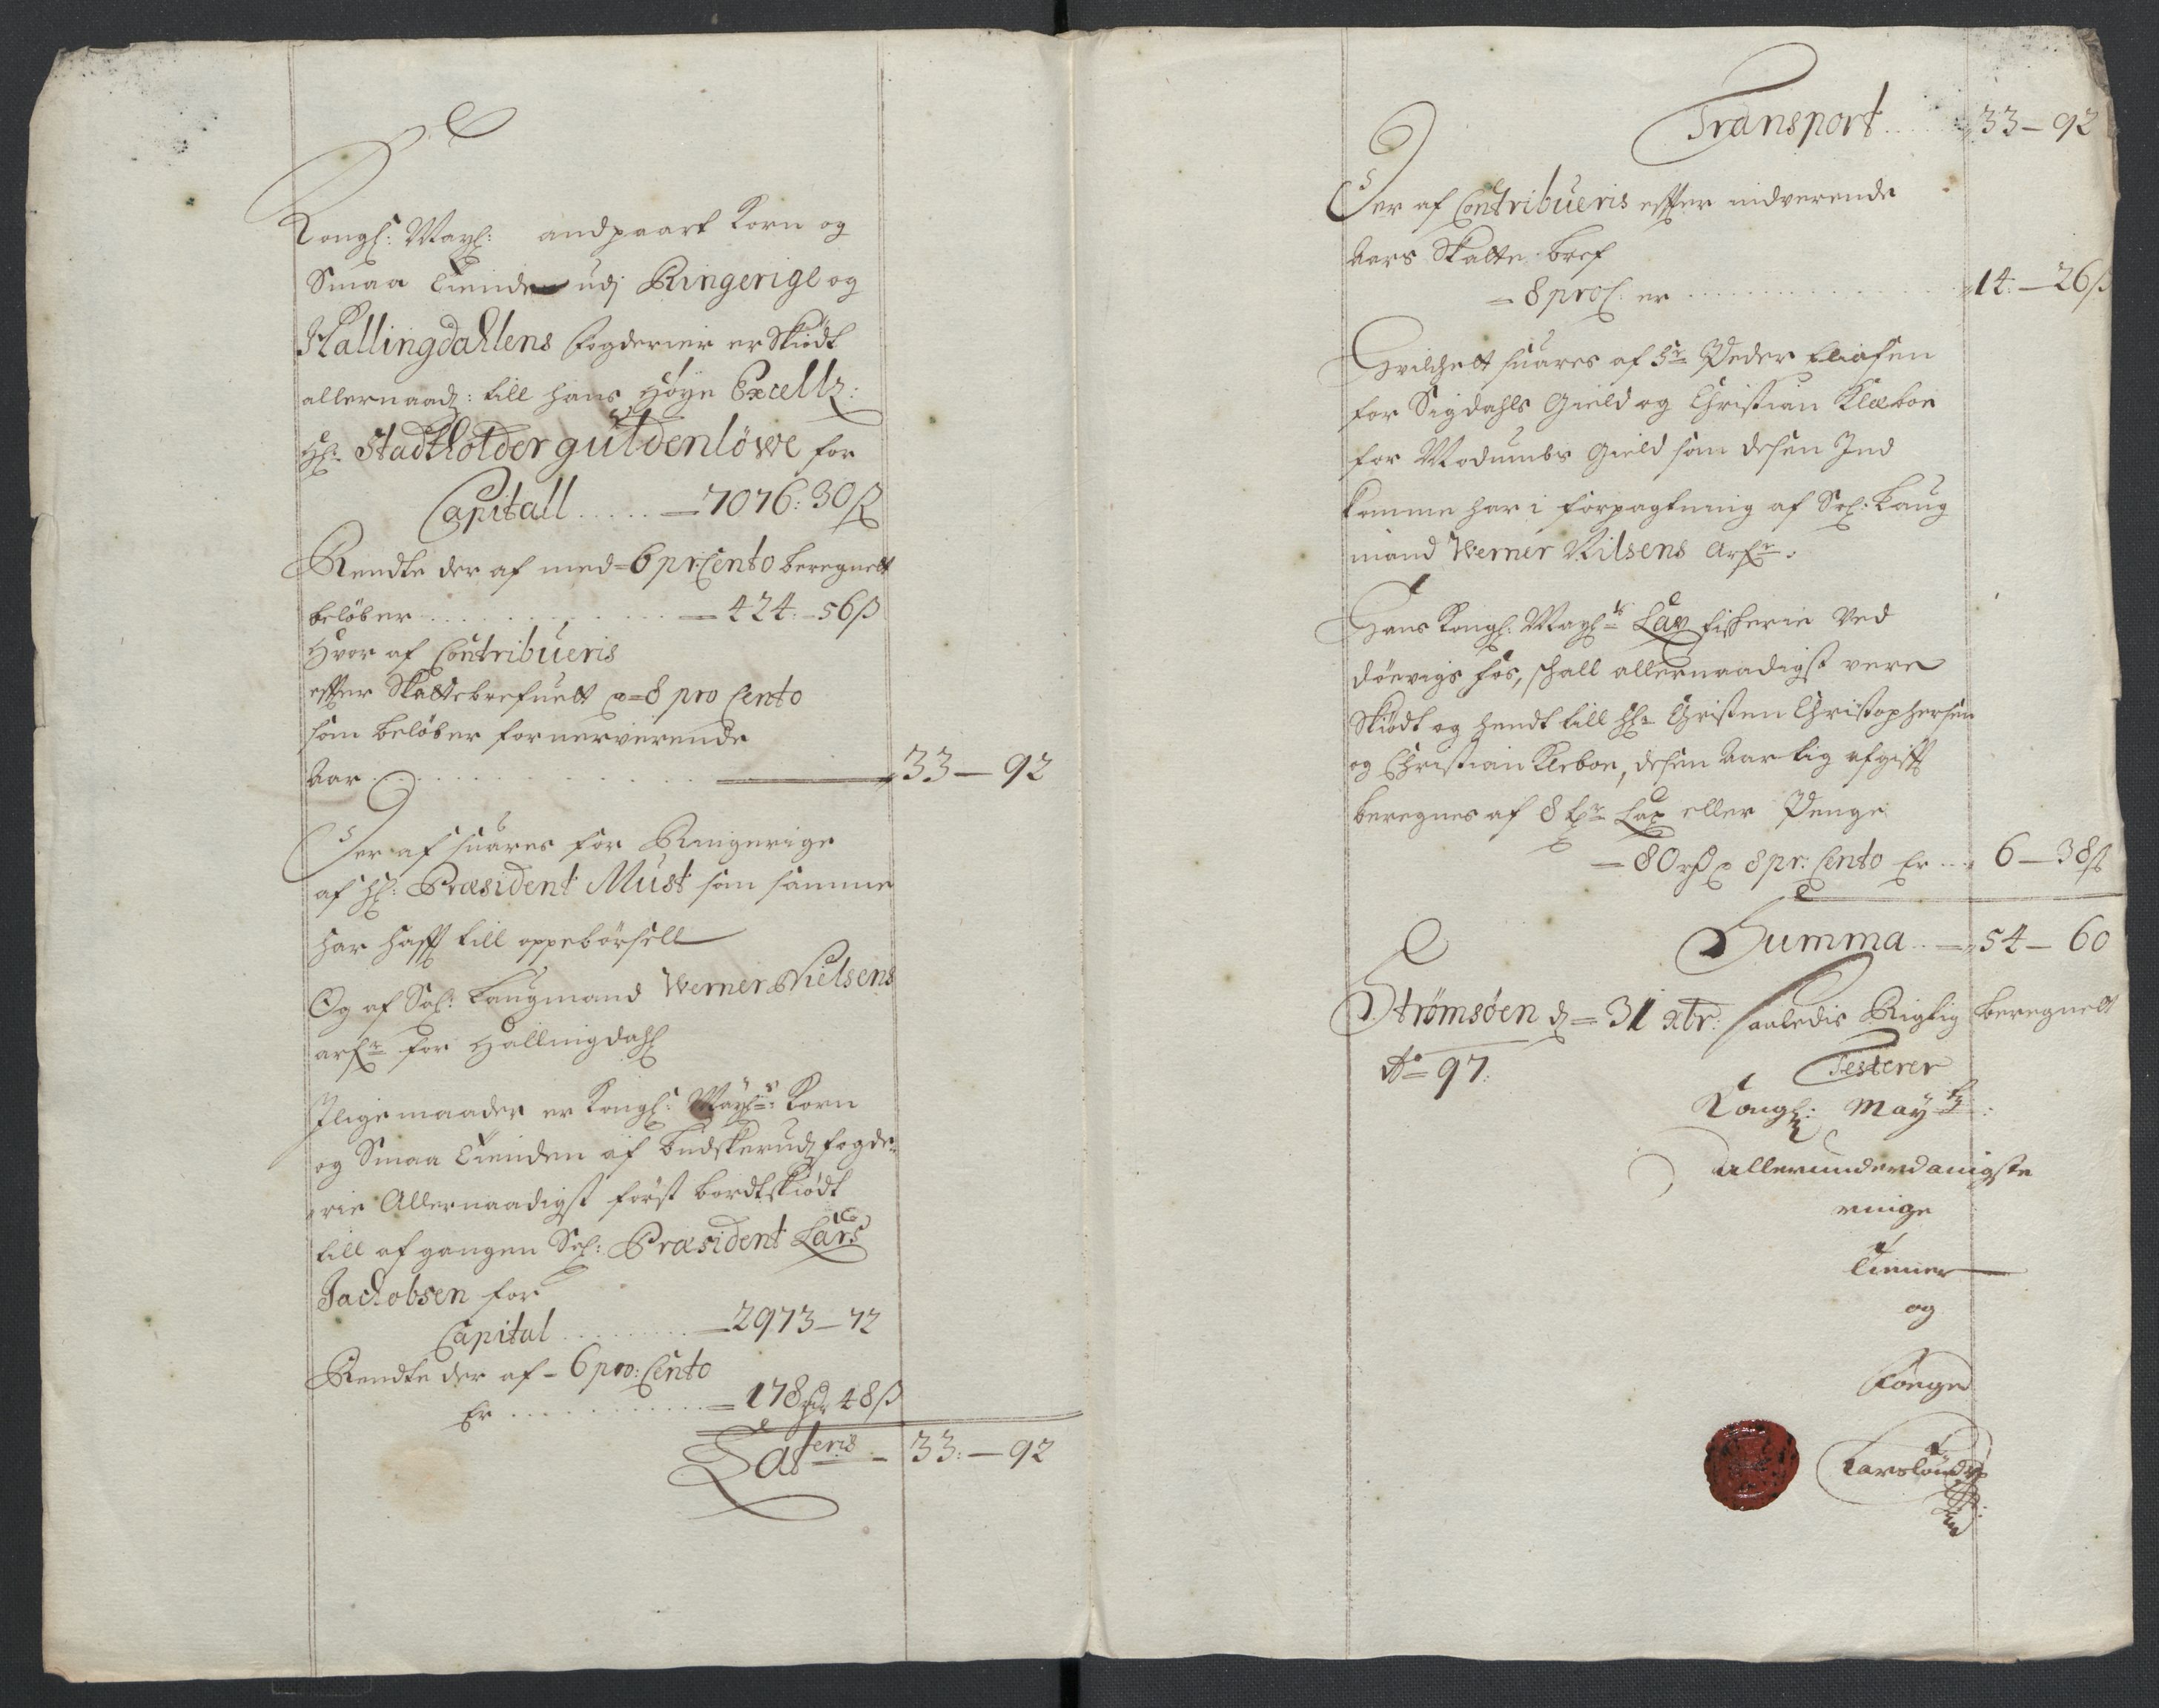 Kongl: Mayl: andpaart Korn og
Smaa Tiende udj Ringerige og
Hallingdahlens fogderier er Skiødt
allernaad: till hans Høye Excellz:
H: Stadtholder güldenlöwe for
Capitall ..... 7076: 30 ß
Rendte der af med 6 pr: Cento beregnett
beløber ..... 424 - 56 ß
Hvor af Contribueris
effter Skattebrefuett 8 pro Cento
som beløber for nerverende
Aar ..... 33 - 92
Der af suares for Ringerige
af H: Præsident Must som samme
har hafft till oppebørsell
Og af Sal: Laugmand Werner Nielsens
arf: for Hallingdahl
Jlige maader er Kongl: Mayts: Korn
og Smaa Tienden af Budskerud fogde-
rie Allernaadigst først bordtskiødt
till afgangen Sal: Præsident Lars
Jackobsen for
Capital ..... 2973 - 72
Rendte der af - 6 pro: Cento
Er ..... 178 rdr 48 ß
Lateris - 33: - 92
Transport .... 33 - 92
Der af Contribueris effter nidverende
Aars Skatte bref
8 pro C: er ..... 14 - 26 ß
Hvilchett suares af Hr Peder Eliasen
for Sigdahls Gield og Christian Klæboe
for Modumbs Gield som desen Ind
komme har i forpagtning af Sal: Laug
mand Werner Nilsens arf:
Hans Kongl: Mayts Lax fisherie Ved
döevigs fos, schall allernaadigst vere
Skiødt og hendt till Hr Christen Christophersen
og Christian Kleboe, desen Aarlig afgifft
beregnes af 8 Lax eller Penge
80 rd 8 pr: Cento Er ... 6 - 38 ß
Summa .. 54 - 60
Strømsøen d 31 xbr: saaledis Rigtig beregnett
Ao 97:
Testerer
Kongl: Mayts:
allerunderdanigste
ringe
Tiener
og
Fouget